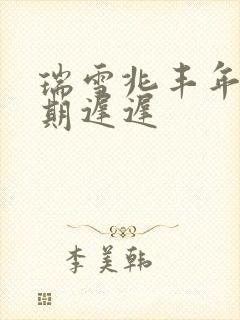 瑞雪兆丰年
期遲遲
李美韩